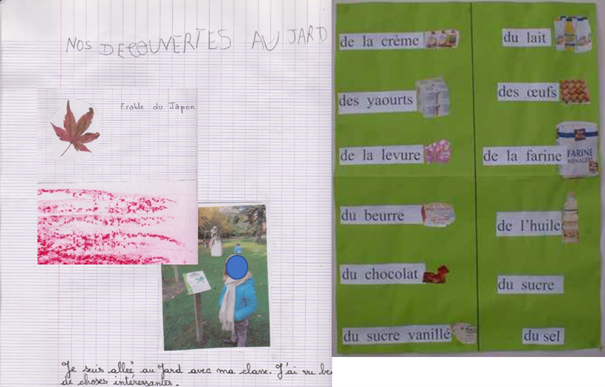 NOS DECOUVERTES AU JARD
Erable du Japon
Je suis allée au Jard avec ma classe. J'ai vu be
de choses intéressantes.
de la crème
du lait
des yaourts
des œufs
de la levure
de la farine
FARINE
du beurre
de l'huile
du chocolat
du sucre
du sucre vanillé
du sel